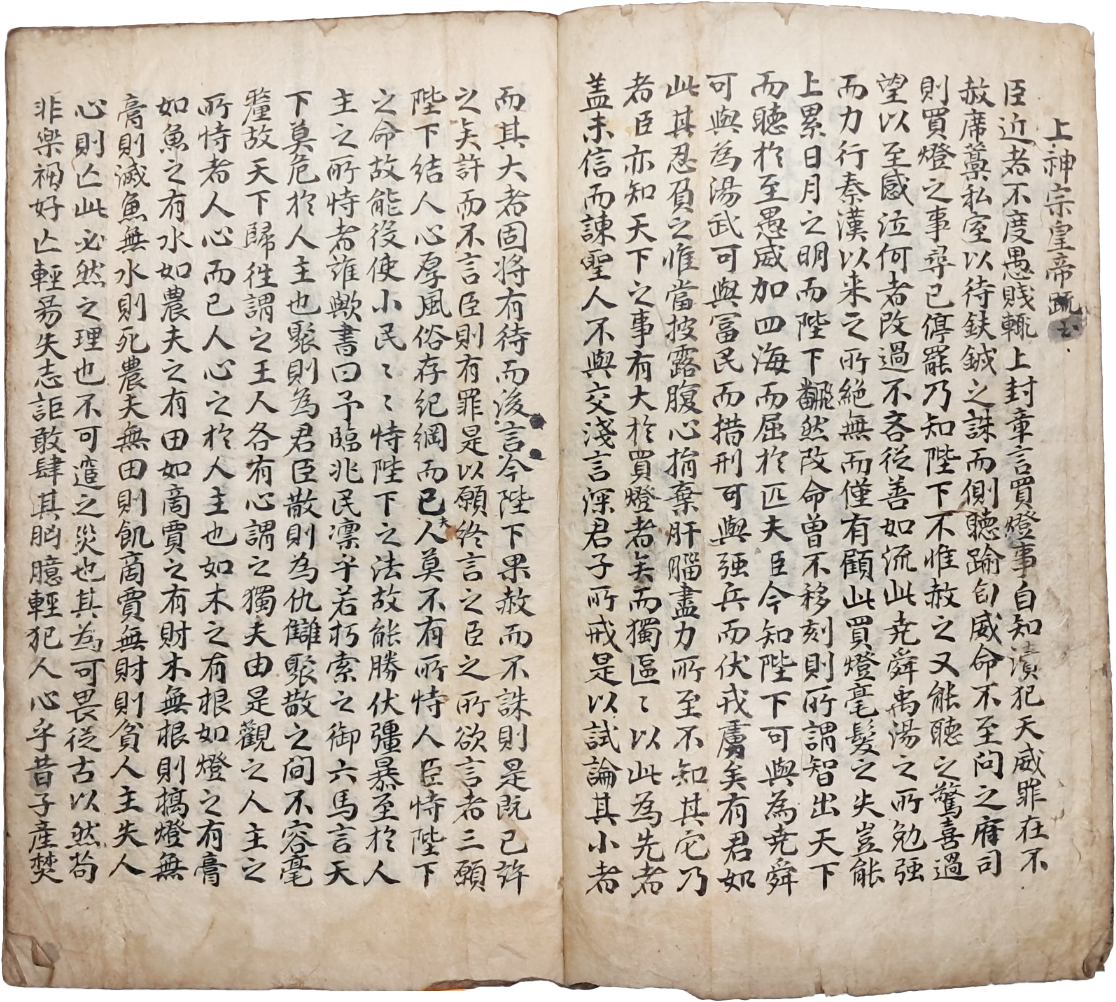 上神宗皇帝疏
臣近者不度愚賤輒上封章言買燈事自知瀆犯天威罪在不
赦席藁私室以待鈇鉞之誅而側聽踰旬威命不至問之府司
則買燈之事尋已停罷乃知陛下不惟赦之又能聽之驚喜過
望以至感泣何者改過不吝從善如流此尭舜禹湯之所勉强
而力行秦漢以来之所絶無而僅有顧此買燈毫髮之失豈能
上累日月之明而陛下飜然改命曾不移刻則所謂智出天下
而聽扵至愚威加四海而屈扵匹夫臣今知陛下可與為尭舜
可與為湯武可與冨民而措刑可與强兵而伏戎虜矣有君如
此其忍負之惟當披露腹心捐棄肝腦盡力所至不知其它乃
者臣亦知天下之事有大扵買燈者矣而獨區〻以此為先者
盖未信而諫聖人不與交淺言深君子所戒是以試論其小者
而其大者固將有待而後言今陛下果赦而不誅則是既已許
之矣許而不言臣則有罪是以願終言之臣之所欲言者三願
陛下結人心厚風俗存紀綱而已夫人莫不有所恃人臣恃陛下
之命故能役使小民〻〻恃陛下之法故能勝伏彊暴至扵人
主之所恃者誰歟書曰予臨兆民凜乎若朽索之御六馬言天
下莫危扵人主也聚則為君臣散則為仇讎聚散之间不容毫
釐故天下歸徃謂之王人各有心謂之獨夫由是觀之人主之
所恃者人心而已人心之扵人主也如木之有根如燈之有膏
如魚之有水如農夫之有田如啇賈之有財木無根則槁燈無
膏則滅魚無水則死農夫無田則飢啇賈無財則貧人主失人
心則亾此必然之理也不可逭之災也其為可畏從古以然苟
非樂禍好亾輕昜失志詎敢肆其胸臆輕犯人心乎昔子產焚